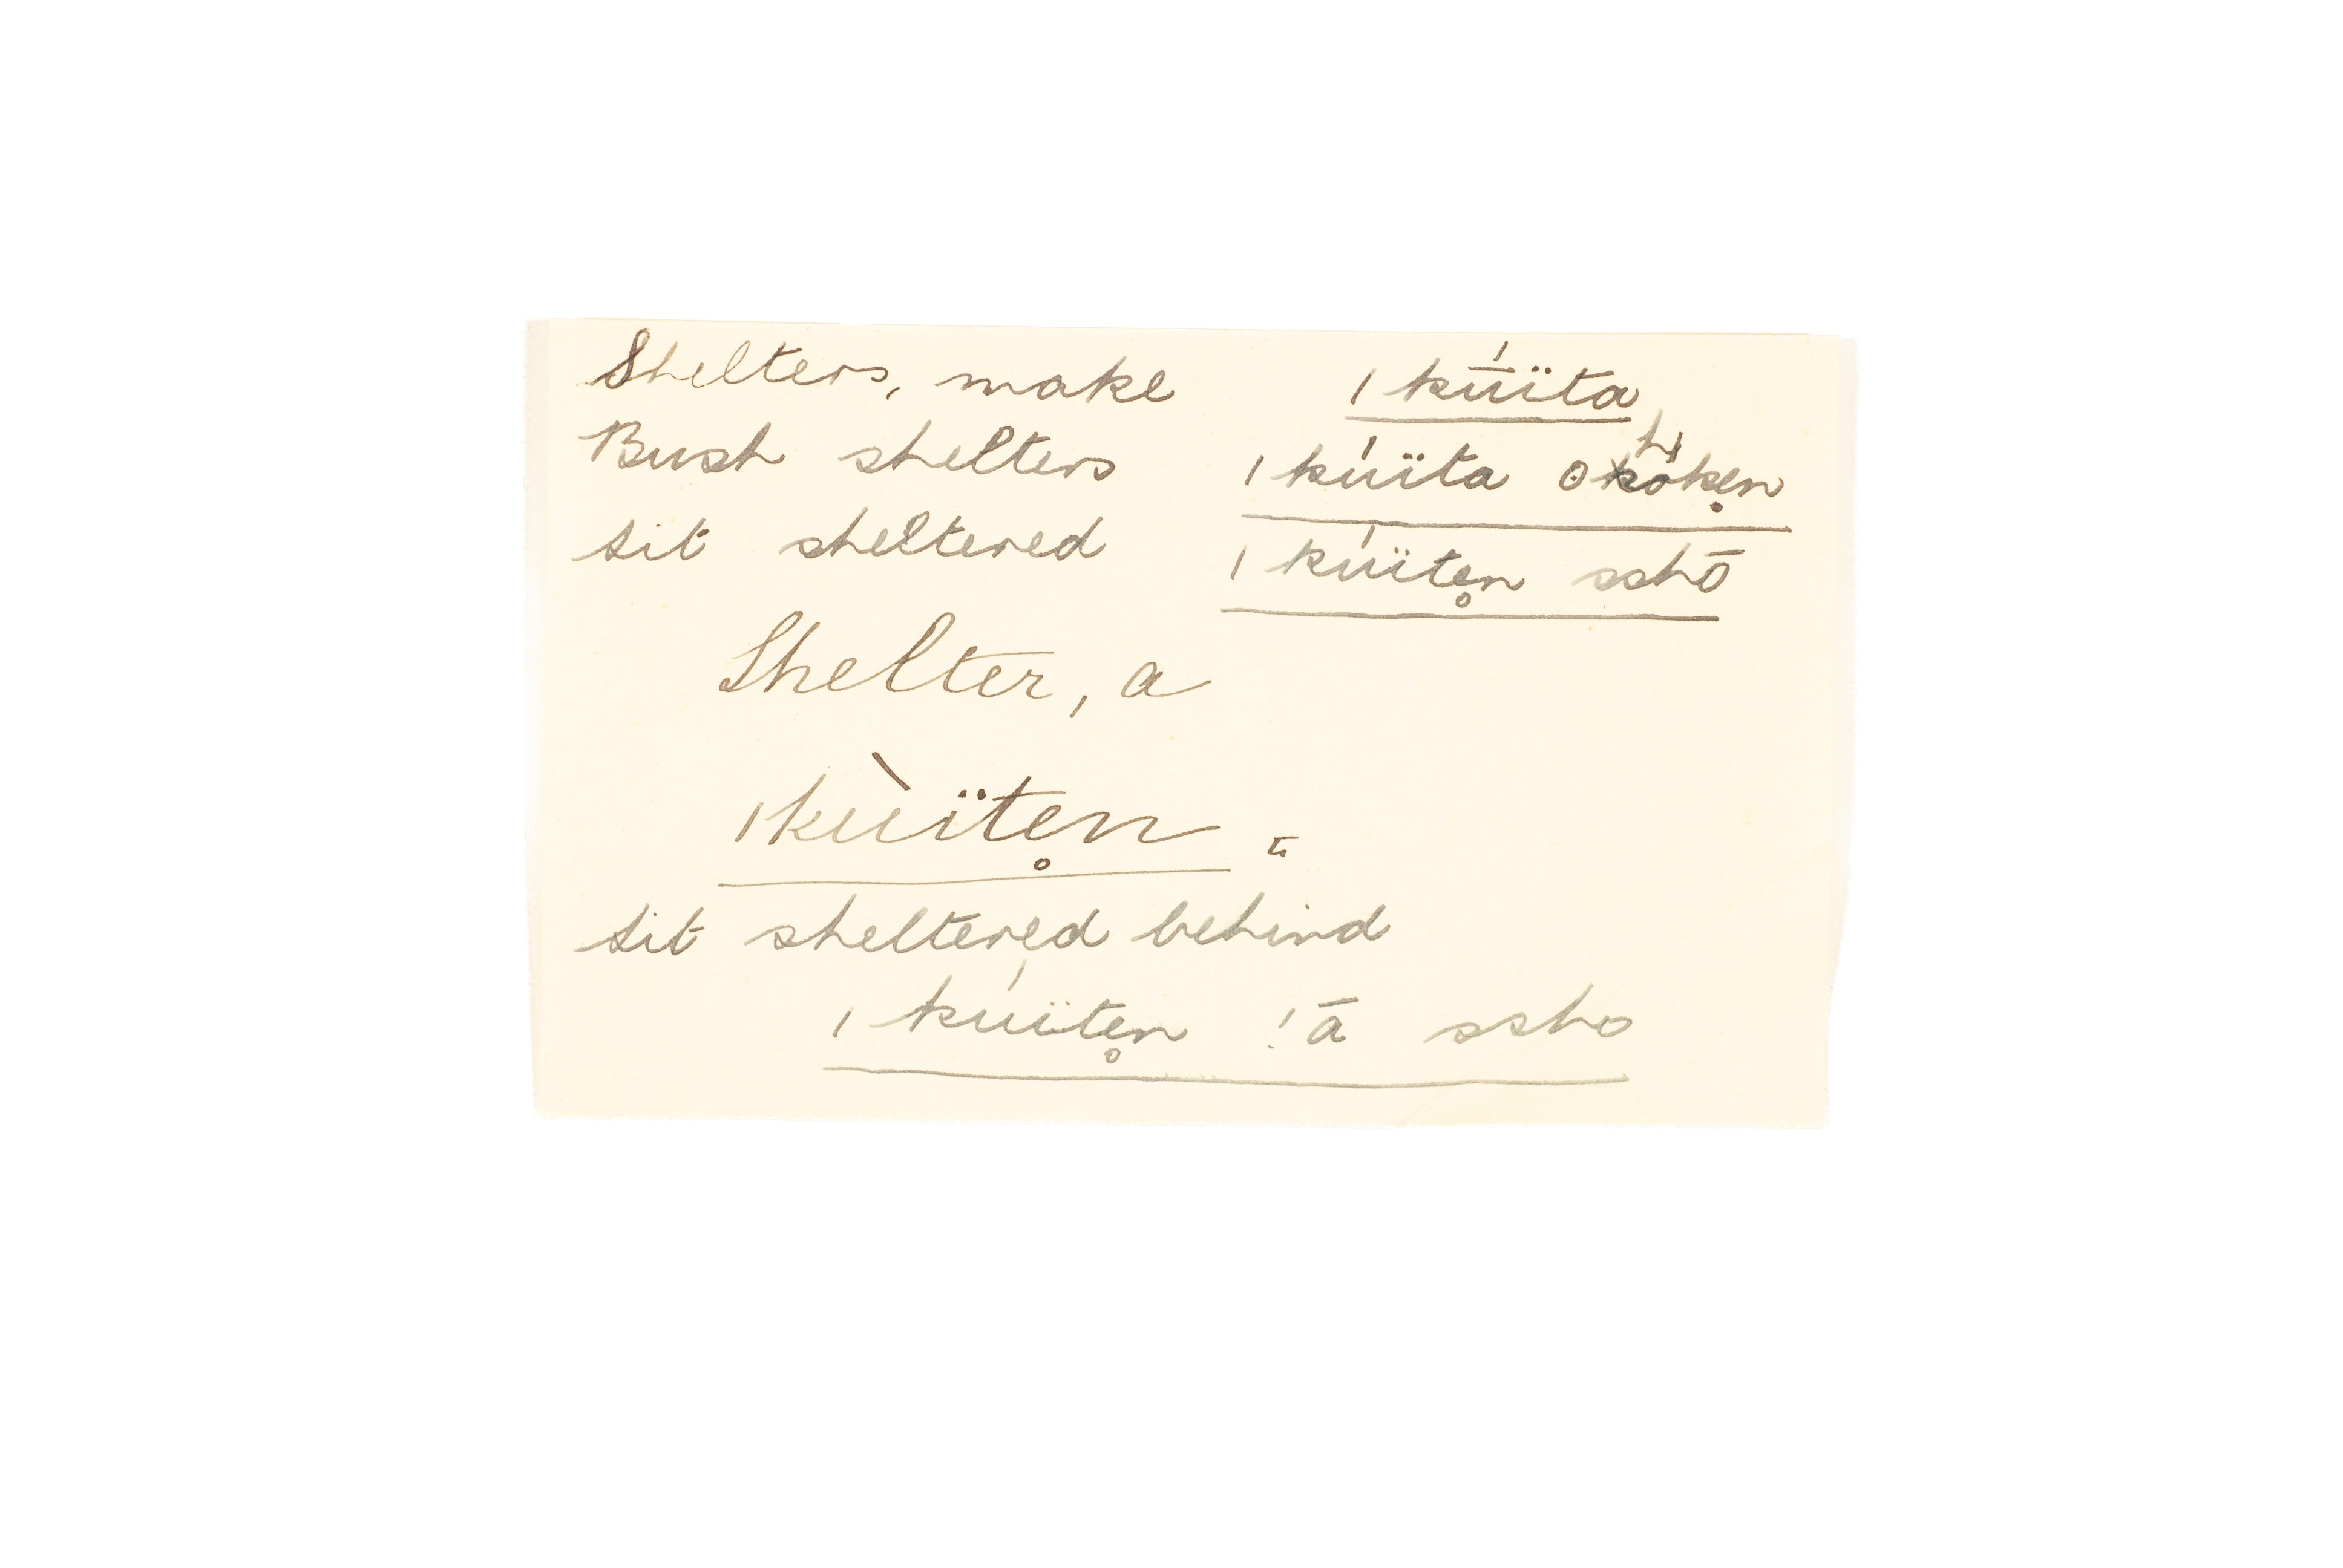 Shelters, make |kū́ïta
Bush shelters |kúïta ʘhóken̥
sit sheltered |kúïten̥ sshō
Shelter, a
|kùïten̥.
sit sheltered behind
|kúïten̥ !ā ssho